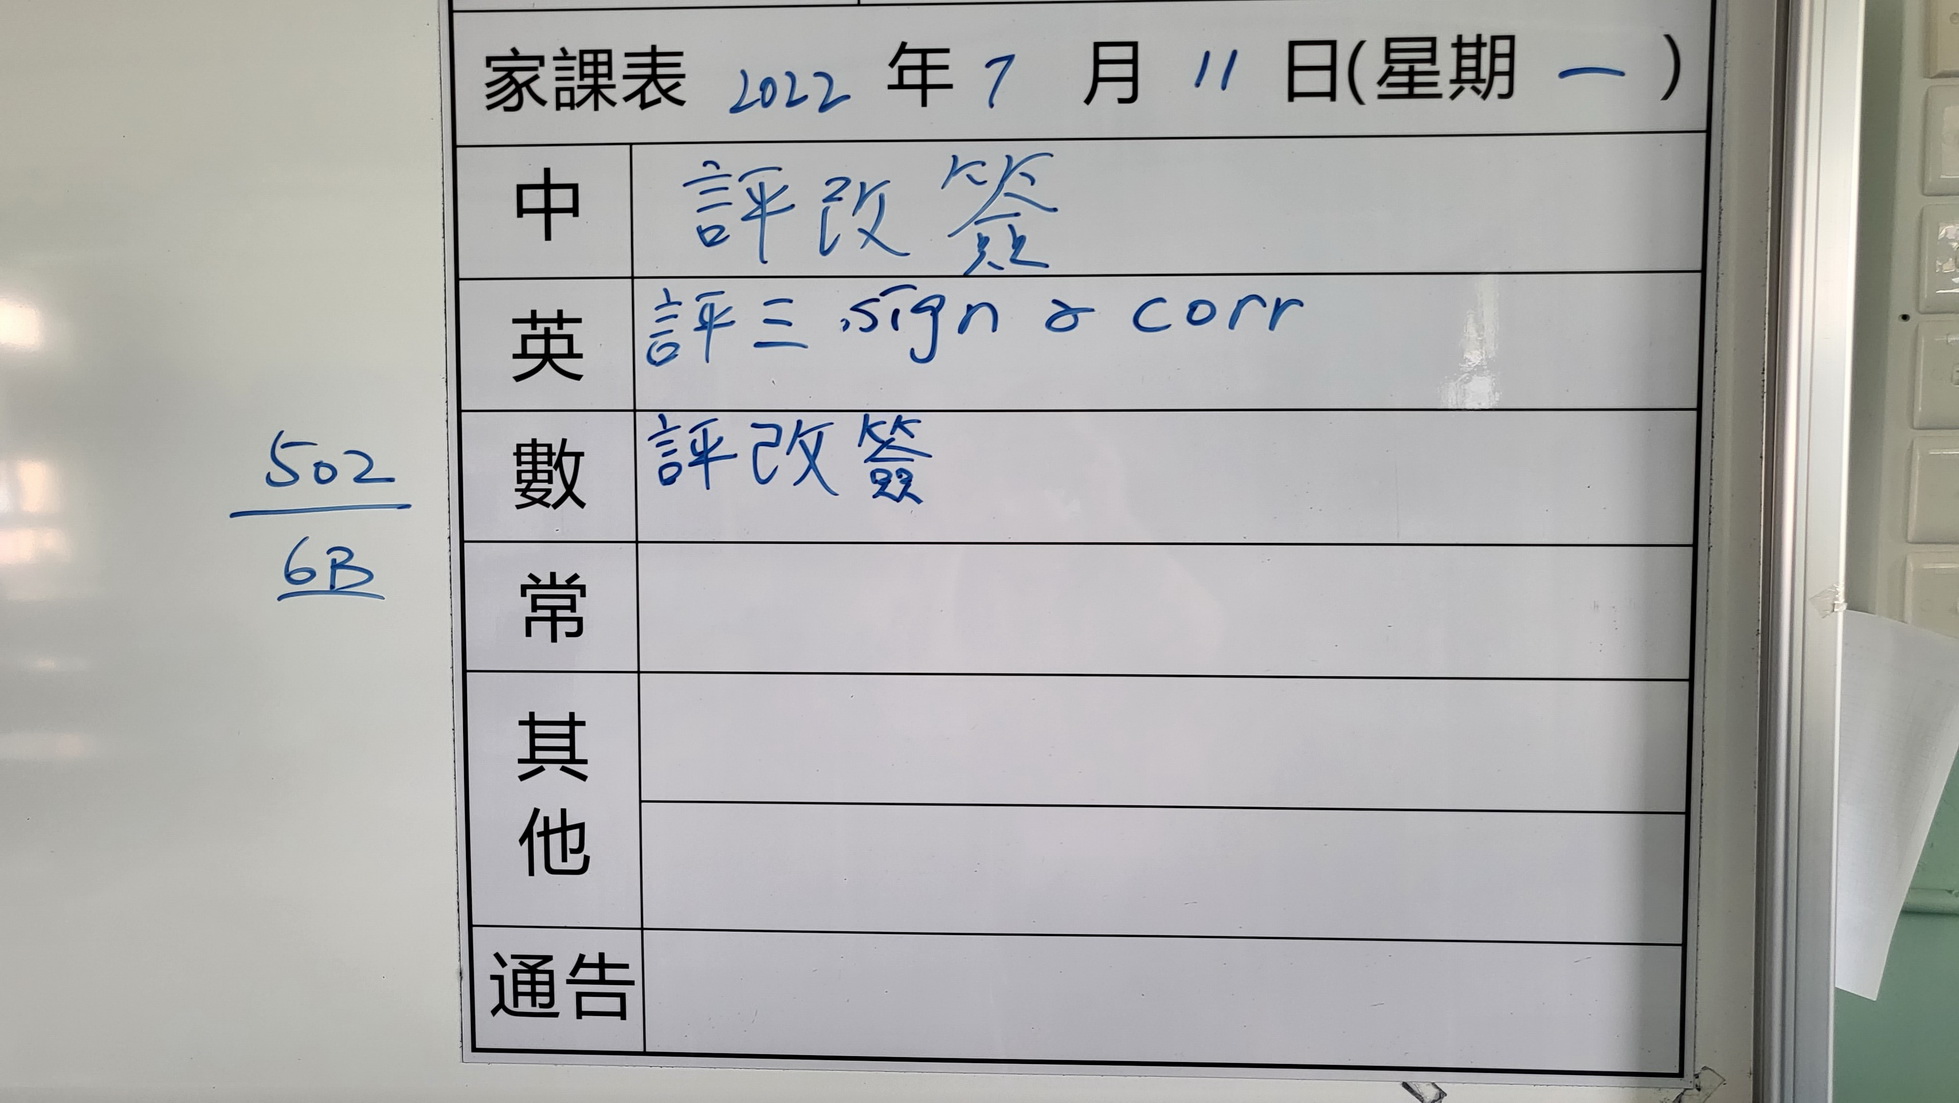 家課表 2022 年 7 月 11 日(星期 一 )
中 評改簽
英 評三 sign & corr
數 評改簽
502
6B
常
其他
通告